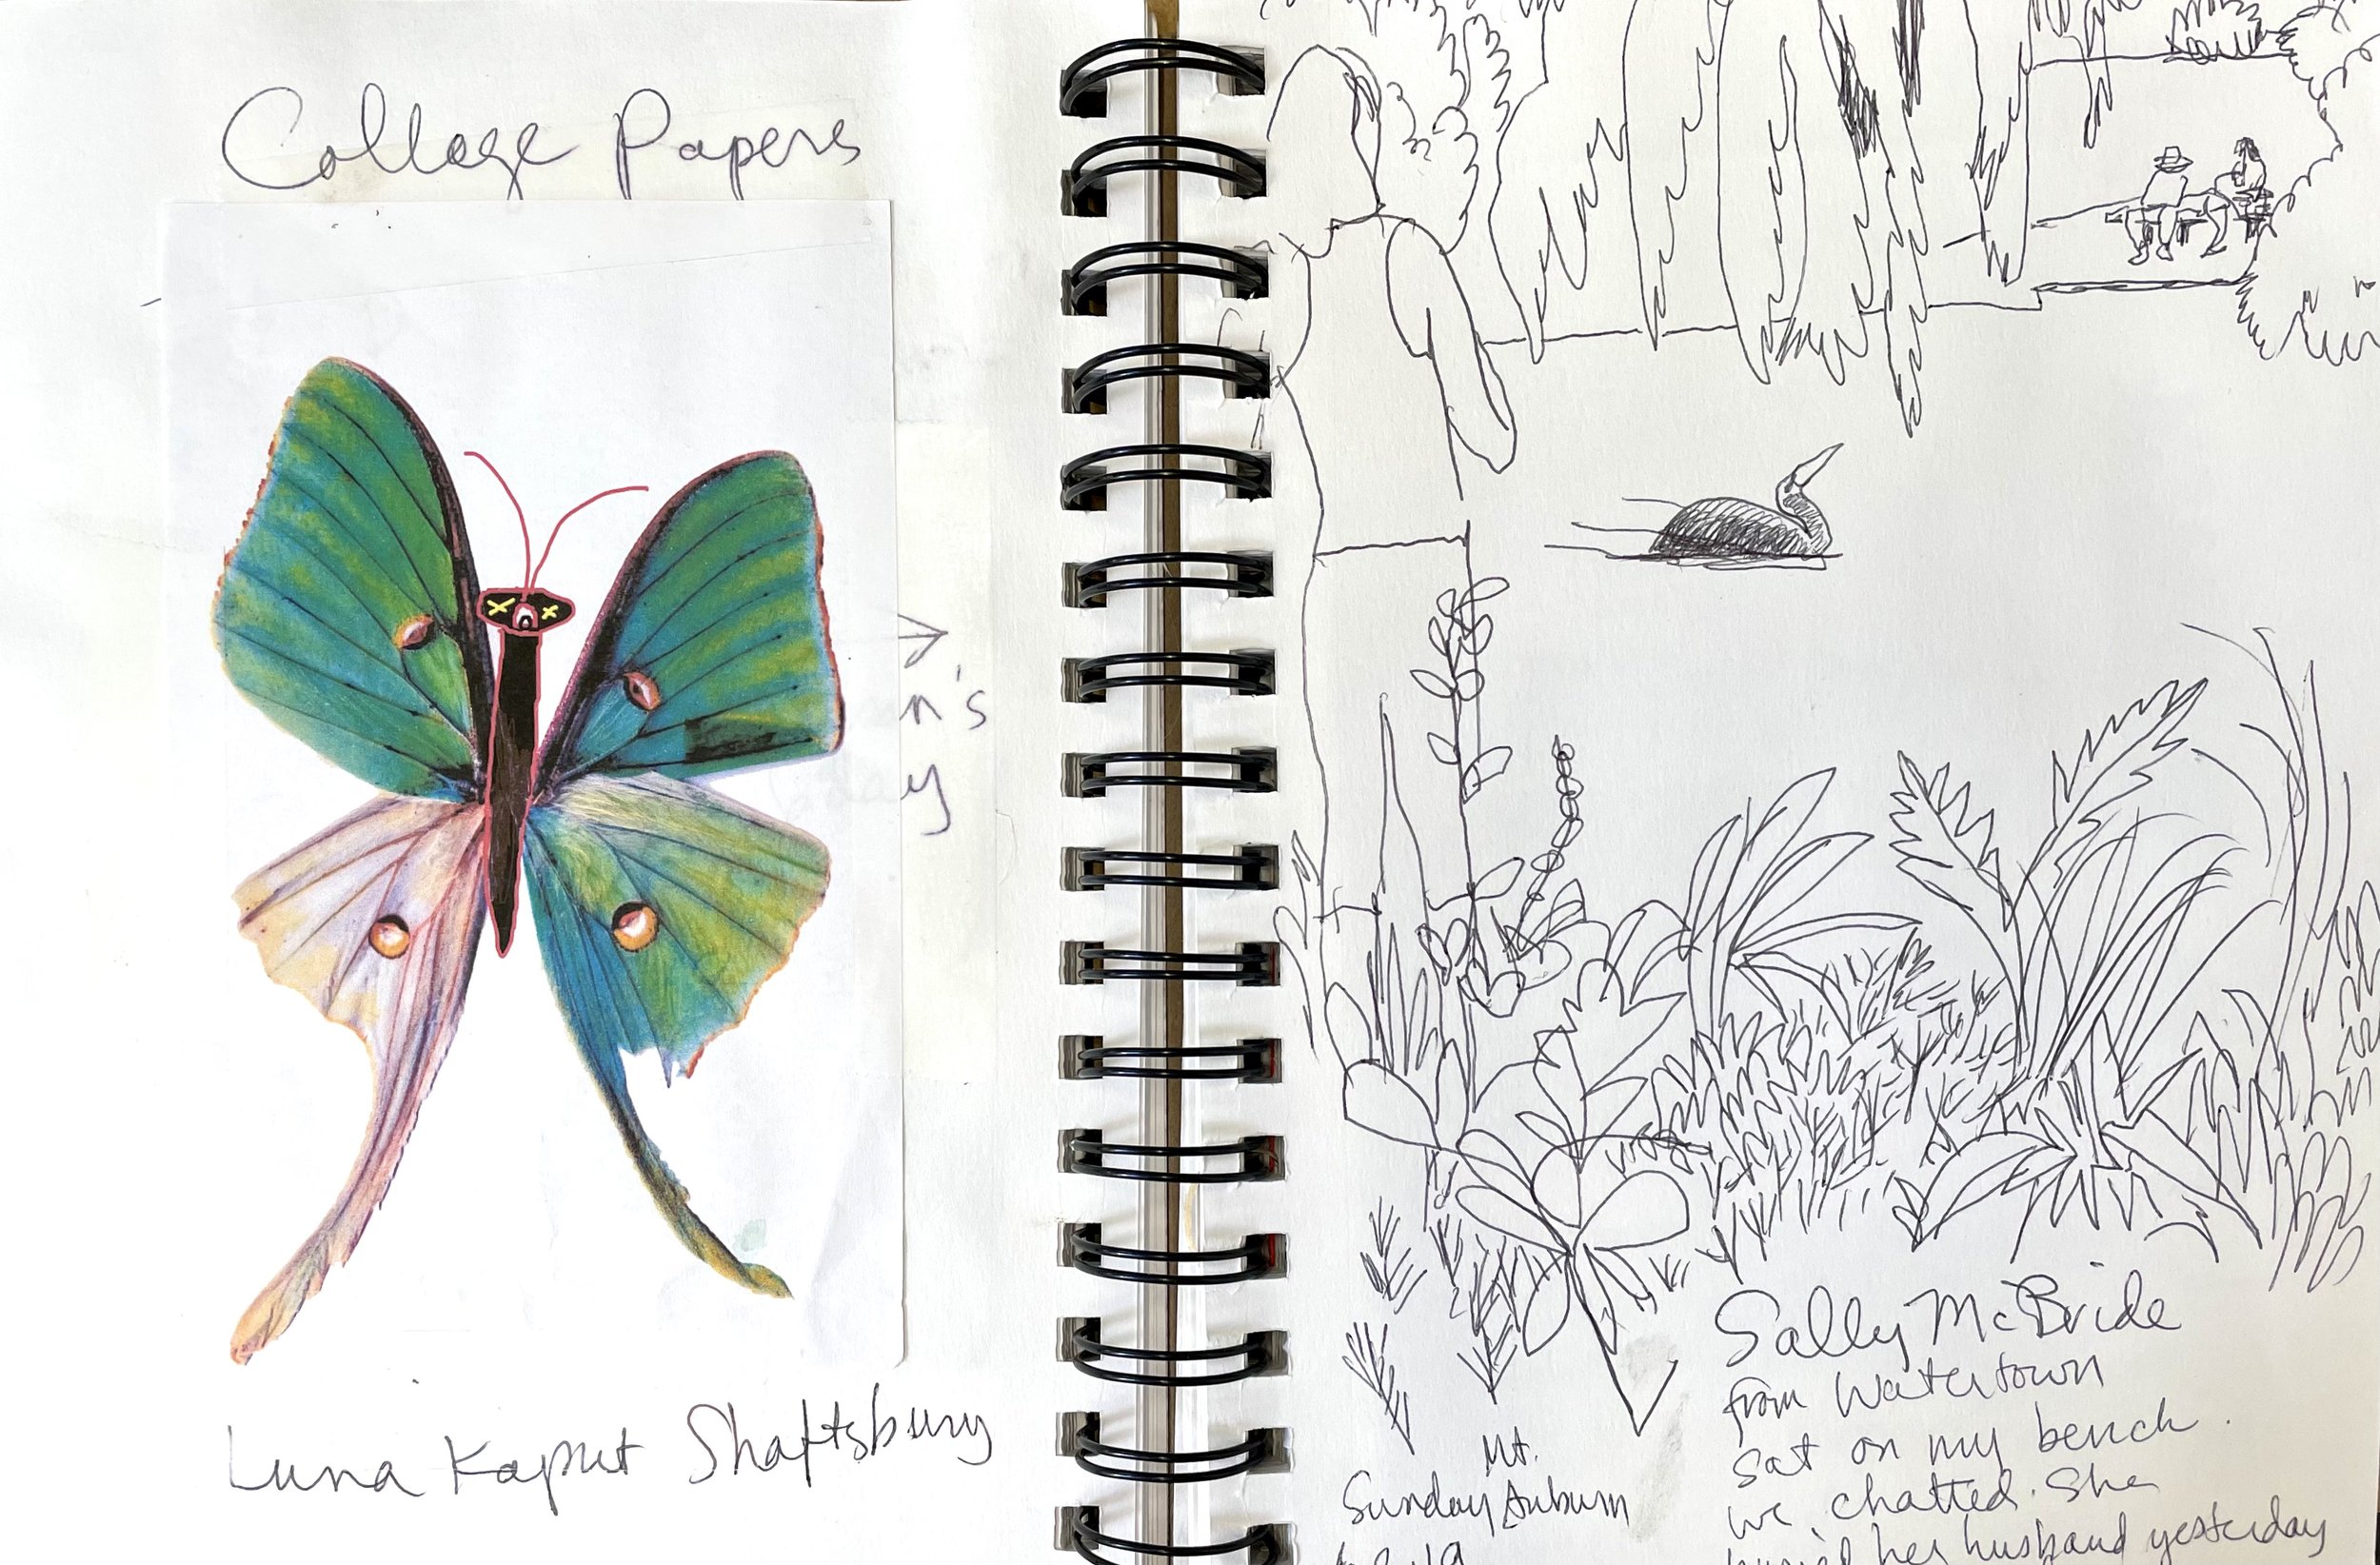 Collage Papers
n's
ay
Luna Kaput Shaftsbury
Sally McBride
from Watertown
sat on my bench.
we chatted. She
buried her husband yesterday
Mt.
Sunday Auburn